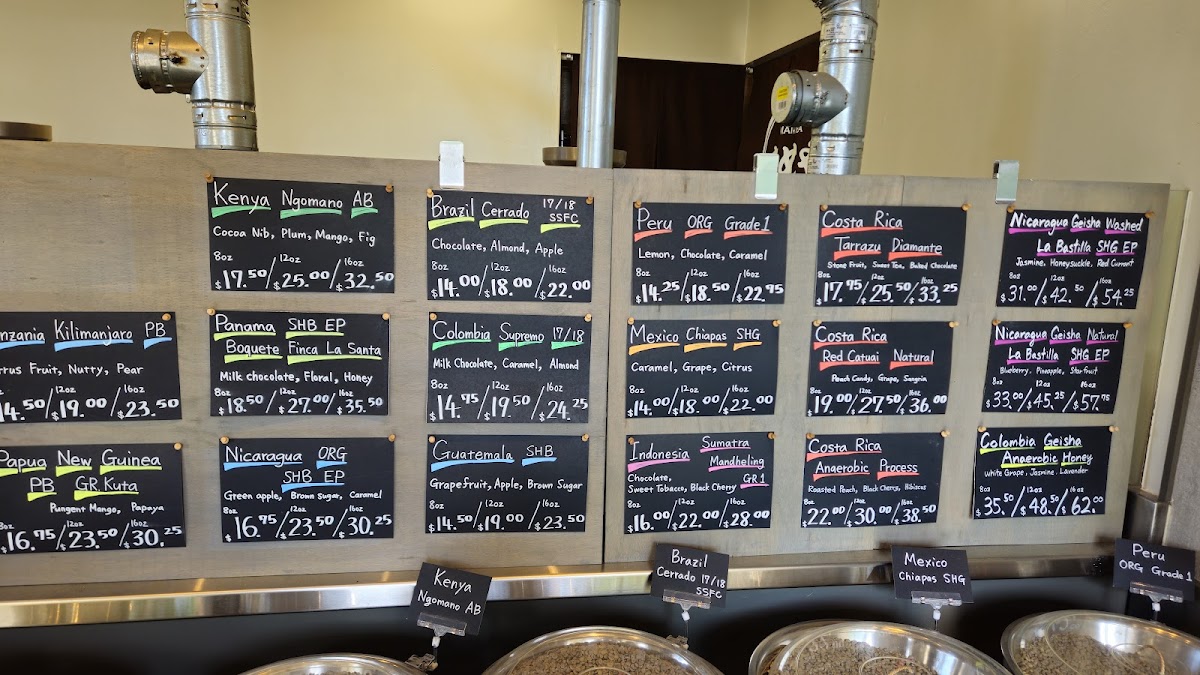 Kenya Ngomano AB
Cocoa Nib, Plum, Mango, Fig
8oz 12oz 16oz
$17.50/$25.00/$32.50
Brazil Cerrado 17/18
SSFC
Chocolate, Almond, Apple
8oz 12oz 16oz
$14.00/$18.00/$22.00
Peru ORG Grade 1
Lemon, Chocolate, Caramel
8oz 12oz 16oz
$14.25/$18.50/$22.75
Costa Rica
Tarrazu Diamante
Stone Fruit, Sweet Tea, Baked Chocolate
8oz 12oz 16oz
$17.75/$25.50/$33.25
Nicaragua Geisha Washed
La Bastilla SHG EP
Jasmine, Honeysuckle, Red Currant
8oz 12oz 16oz
$31.00/$42.50/$54.25
Kilimanjaro PB
Fruit, Nutty, Pear
12oz 16oz
$19.00/$23.50
Panama SHB EP
Boquete Finca La Santa
Milk chocolate, Floral, Honey
8oz 12oz 16oz
$18.50/$27.00/$35.50
Colombia Supremo 17/18
Milk Chocolate, Caramel, Almond
8oz 12oz 16oz
$14.75/$19.50/$24.25
Mexico Chiapas SHG
Caramel, Grape, Citrus
8oz 12oz 16oz
$14.00/$18.00/$22.00
Costa Rica
Red Catuai Natural
Peach Candy, Grape, Sangria
8oz 12oz 16oz
$19.00/$27.50/$36.00
Nicaragua Geisha Natural
La Bastilla SHG EP
Blueberry, Pineapple, Starfruit
8oz 12oz 16oz
$33.00/$45.25/$57.75
Papua New Guinea
PB GR.Kuta
Pungent Mango, Papaya
8oz 12oz 16oz
$16.75/$23.50/$30.25
Nicaragua ORG
SHB EP
Green apple, Brown Sugar, Caramel
8oz 12oz 16oz
$16.75/$23.50/$30.25
Guatemala SHB
Grapefruit, Apple, Brown Sugar
8oz 12oz 16oz
$14.50/$19.00/$23.50
Indonesia Sumatra
Mandheling
Chocolate, GR 1
Sweet Tobacco, Black Cherry
8oz 12oz 16oz
$16.00/$22.00/$28.00
Costa Rica
Anaerobic Process
Roasted Peach, Black Cherry, Hibiscus
8oz 12oz 16oz
$22.00/$30.00/$38.50
Colombia Geisha
Anaerobic Honey
White Grape, Jasmine, Lavender
8oz 12oz 16oz
$35.50/$48.50/$62.00
Kenya
Ngomano AB
Brazil
Cerrado 17/18
SSFC
Mexico
Chiapas SHG
Peru
ORG Grade 1